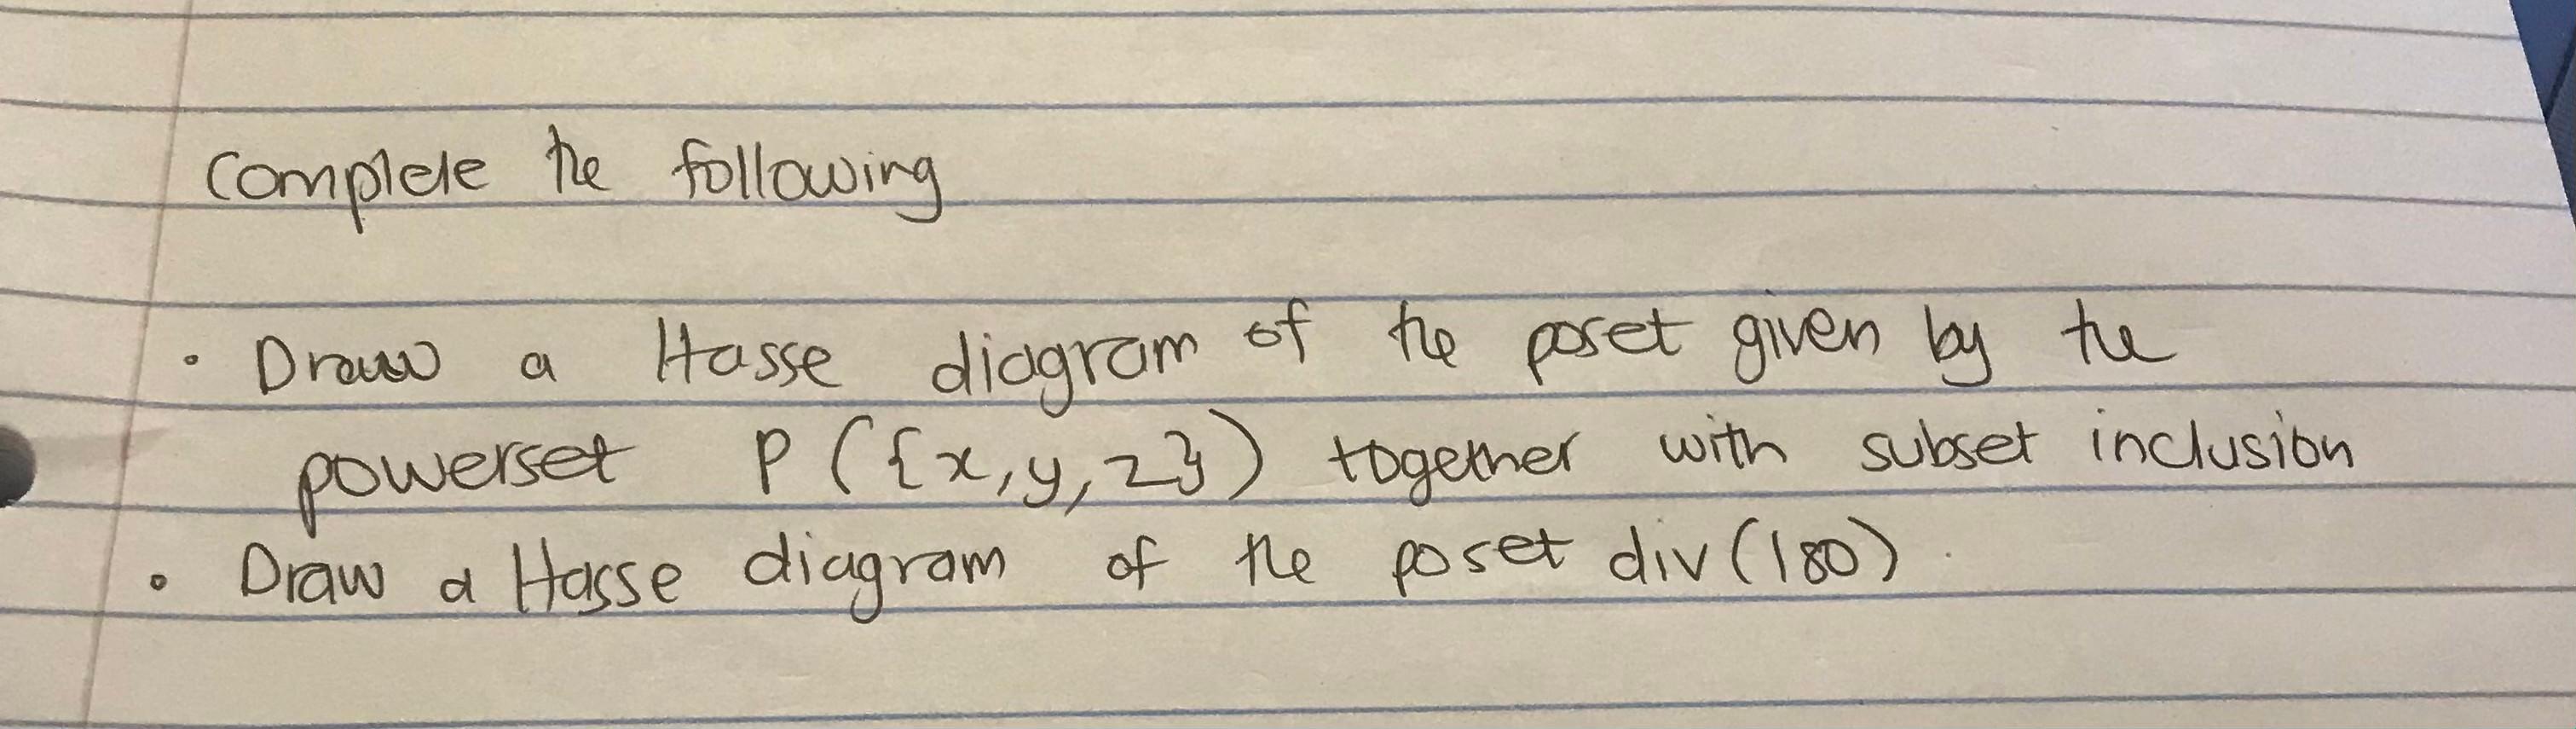 Complete the following
• Draw a Hasse diagram of the poset given by the
powerset P ({x, y, z}) together with subset inclusion
• Draw a Hasse diagram of the poset div (180).